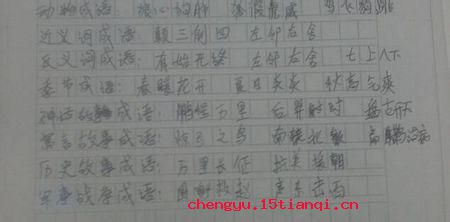 动物成语: 狼心狗肺 狐假虎威
近义词成语: 颠三倒四 左邻右舍
反义词成语: 有始无终 左邻右舍 七上八下
季节成语: 春暖花开 夏日炎炎 秋高气爽
神话故事成语: 鹏程万里 后羿射
寓言故事成语: 惊弓之鸟 南辕北辙
历史故事成语: 万里长征
军事战争成语: 围魏救赵 声东击西
chengyu.15tianqi.cn